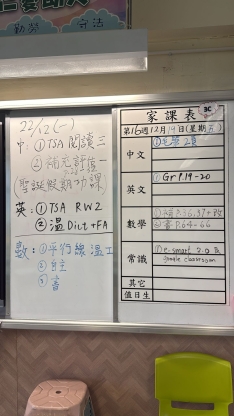 勤勞 守法
22/12(一)
中:① TSA 閱讀三
② 補充評估一
(聖誕假期功課)
英:① TSA RW2
② 溫 Dict + FA
數:① 平行線 溫工
② 自主
③ 書
家課表
3C
第16週12月19日(星期五)
中文
英文 ① Gr P.19-20
數學 ① 補 P.36,37+改
② 書 P.64-66
常識 ① e-smart 2.0 及
google classroom
其它
值日生